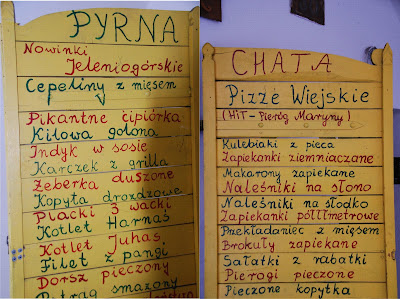 PYRNA
Nowinki
Jeleniogórskie
Cepeliny z mięsem
Pikantne cipiórka
Kilowa golona
Indyk w sosie
Karczek z grilla
Żeberka duszone
Kopyta drożdżowe
Placki 3 wacki
Kotlet Harnaś
Kotlet Juhas
Filet z pangi
Dorsz pieczony
Pstrąg smażony
CHATA
Pizze Wiejskie
(HiT-Pieróg Maryny)
Kulebiaki z pieca
Zapiekanki ziemniaczane
Makarony zapiekane
Naleśniki na słono
Naleśniki na słodko
Zapiekanki półllmetrowe
Przekładaniec z mięsem
Brokuły zapiekane
Sałatki z rabatki
Pierogi pieczone
Pieczone kopytka